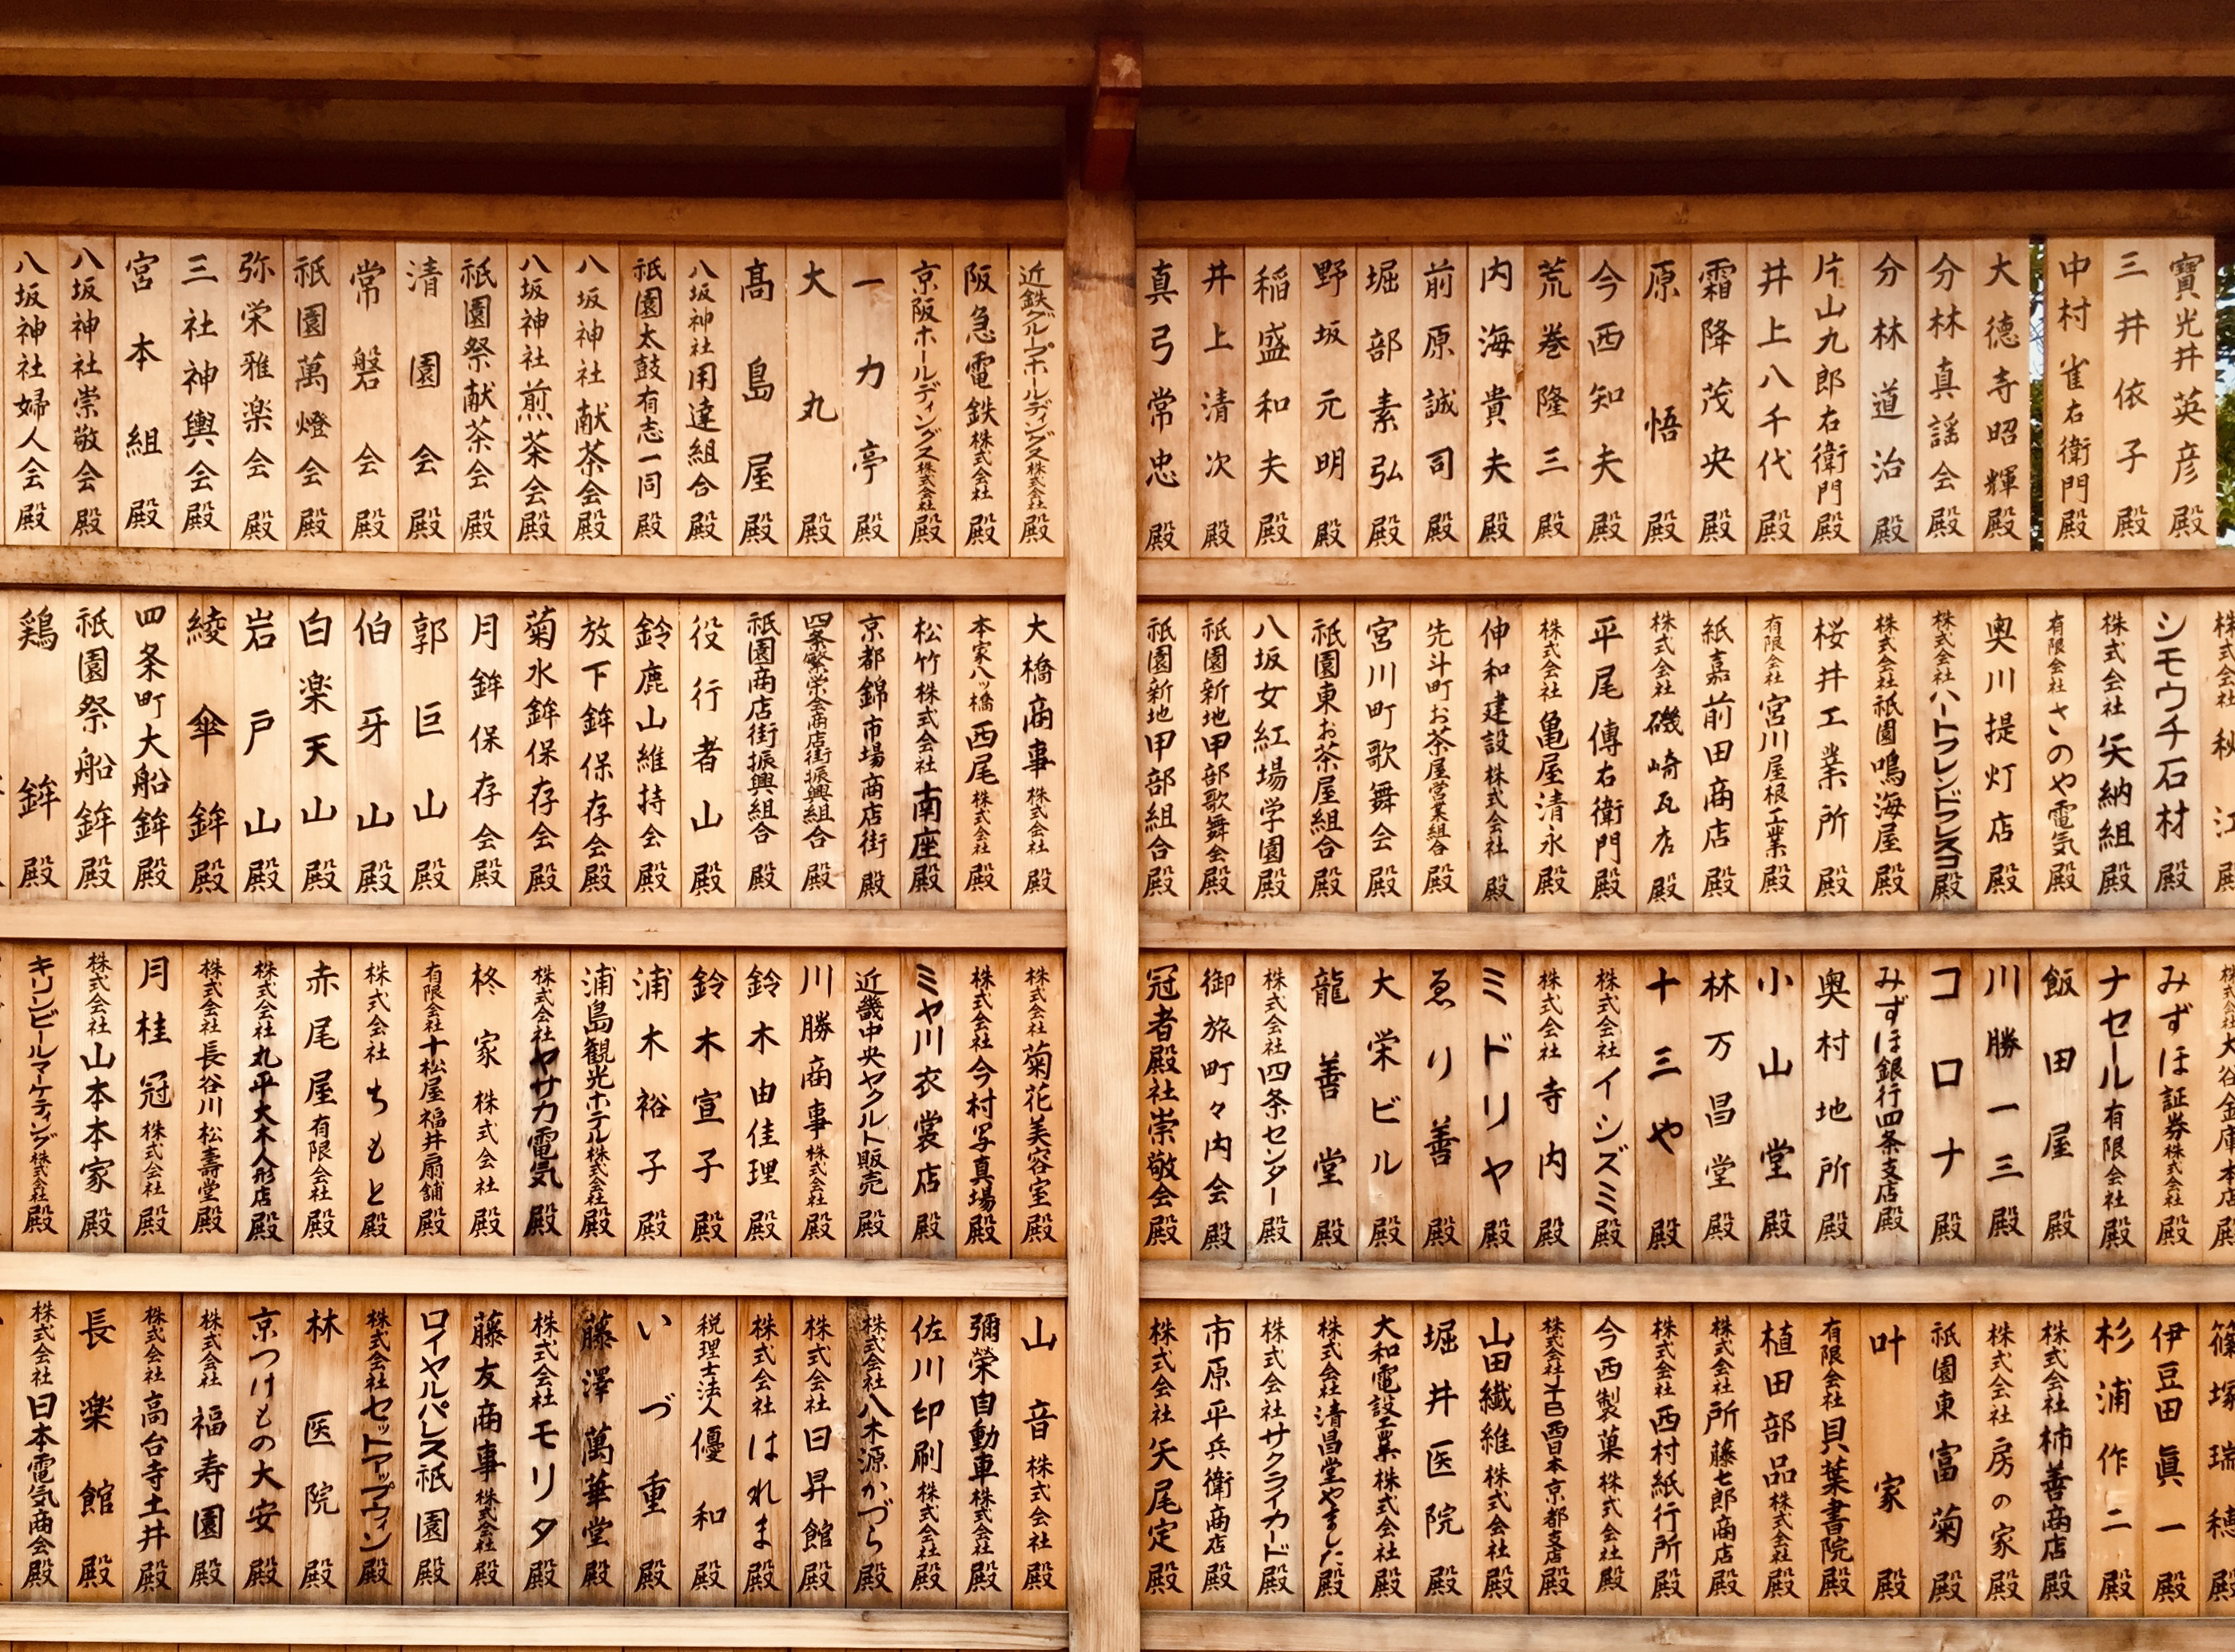 寶光井英彦殿
三井依子殿
中村雀右衛門殿
大德寺昭輝殿
分林真謡会殿
分林道治殿
片山九郎右衛門殿
井上八千代殿
霜降茂央殿
原悟殿
今西知夫殿
荒巻隆三殿
内海貴夫殿
前原誠司殿
堀部素弘殿
野坂元明殿
稲盛和夫殿
井上清次殿
真弓常忠殿
近鉄グループホールディングス株式会社殿
阪急電鉄株式会社殿
京阪ホールディングス株式会社殿
一力亭殿
大丸殿
髙島屋殿
八坂神社用達組合殿
祇園太鼓有志一同殿
八坂神社献茶会殿
八坂神社煎茶会殿
祇園祭献茶会殿
清園会殿
常磐会殿
祇園萬燈会殿
弥栄雅楽会殿
三社神輿会殿
宮本組殿
八坂神社崇敬会殿
八坂神社婦人会殿
シモウチ石材殿
株式会社矢納組殿
有限会社さのや電気殿
奥川提灯店殿
株式会社ハートフレンドフレスコ殿
株式会社祇園鳴海屋殿
桜井工業所殿
有限会社宮川屋根工業殿
紙嘉前田商店殿
株式会社磯崎瓦店殿
平尾傳右衛門殿
株式会社亀屋清永殿
伸和建設株式会社殿
先斗町お茶屋営業組合殿
宮川町歌舞会殿
祇園東お茶屋組合殿
八坂女紅場学園殿
祇園新地甲部歌舞会殿
祇園新地甲部組合殿
大橋商事株式会社殿
本家八ッ橋西尾株式会社殿
松竹株式会社南座殿
京都錦市場商店街殿
四条繁栄会商店街振興組合殿
祇園商店街振興組合殿
役行者山殿
鈴鹿山維持会殿
放下鉾保存会殿
菊水鉾保存会殿
月鉾保存会殿
郭巨山殿
伯牙山殿
白楽天山殿
岩戸山殿
綾傘鉾殿
四条町大船鉾殿
祇園祭船鉾殿
鶏鉾殿
株式会社大谷金庫本店殿
みずほ証券株式会社殿
ナセール有限会社殿
飯田屋殿
川勝一三殿
コロナ殿
みずほ銀行四条支店殿
奥村地所殿
小山堂殿
林万昌堂殿
十三や殿
株式会社イシズミ殿
株式会社寺内殿
ミドリヤ殿
ゑり善殿
大栄ビル殿
龍善堂殿
株式会社四条センター殿
御旅町々内会殿
冠者殿社崇敬会殿
株式会社菊花美容室殿
株式会社今村写真場殿
ミヤ川衣裳店殿
近畿中央ヤクルト販売殿
川勝商事株式会社殿
鈴木由佳理殿
鈴木宣子殿
浦木裕子殿
浦島観光ホテル株式会社殿
株式会社ヤサカ電気殿
柊家株式会社殿
有限会社十松屋福井扇舗殿
株式会社ちもと殿
赤尾屋有限会社殿
株式会社丸平大木人形店殿
株式会社長谷川松壽堂殿
月桂冠株式会社殿
株式会社山本本家殿
キリンビールマーケティング株式会社殿
篠塚瑞穂殿
伊豆田眞一殿
杉浦作二殿
株式会社柿善商店殿
株式会社房の家殿
祇園東富菊殿
叶家殿
有限会社貝葉書院殿
植田部品株式会社殿
株式会社所藤七郎商店殿
株式会社西村紙行所殿
今西製菓株式会社殿
西日本京都支店殿
山田繊維株式会社殿
堀井医院殿
大和電設工業株式会社殿
株式会社清昌堂やました殿
株式会社サクライカード殿
市原平兵衛商店殿
株式会社矢尾定殿
山音株式会社殿
彌榮自動車株式会社殿
佐川印刷株式会社殿
株式会社八木源かづら殿
株式会社日昇館殿
株式会社はれま殿
税理士法人優和殿
いづ重殿
藤澤萬華堂殿
株式会社モリタ殿
藤友商事株式会社殿
ロイヤルパレス祇園殿
株式会社セットアップウィン殿
林医院殿
京つけもの大安殿
株式会社福寿園殿
株式会社高台寺土井殿
長楽館殿
株式会社日本電気商会殿